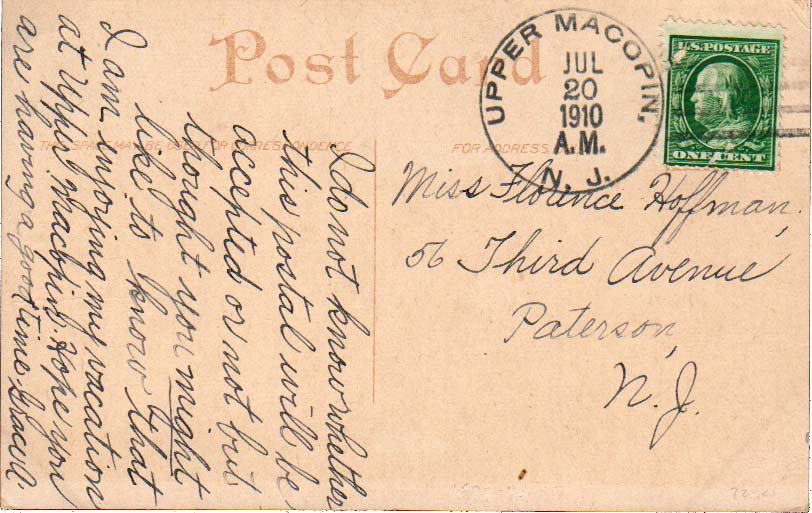 Post Card
THIS SPACE MAY BE USED FOR CORRESPONDENCE
FOR ADDRESS
UPPER MACOPIN,
JUL
20
1910
A.M.
N. J.
U.S. POSTAGE
ONE CENT
I do not know whether
this postal will be
accepted or not but
thought you might
like to know that
I am enjoying my vacation
at Upper Macopin. Hope you
are having a good time.
Miss Florence Hoffman,
56 Third Avenue
Paterson,
N. J.